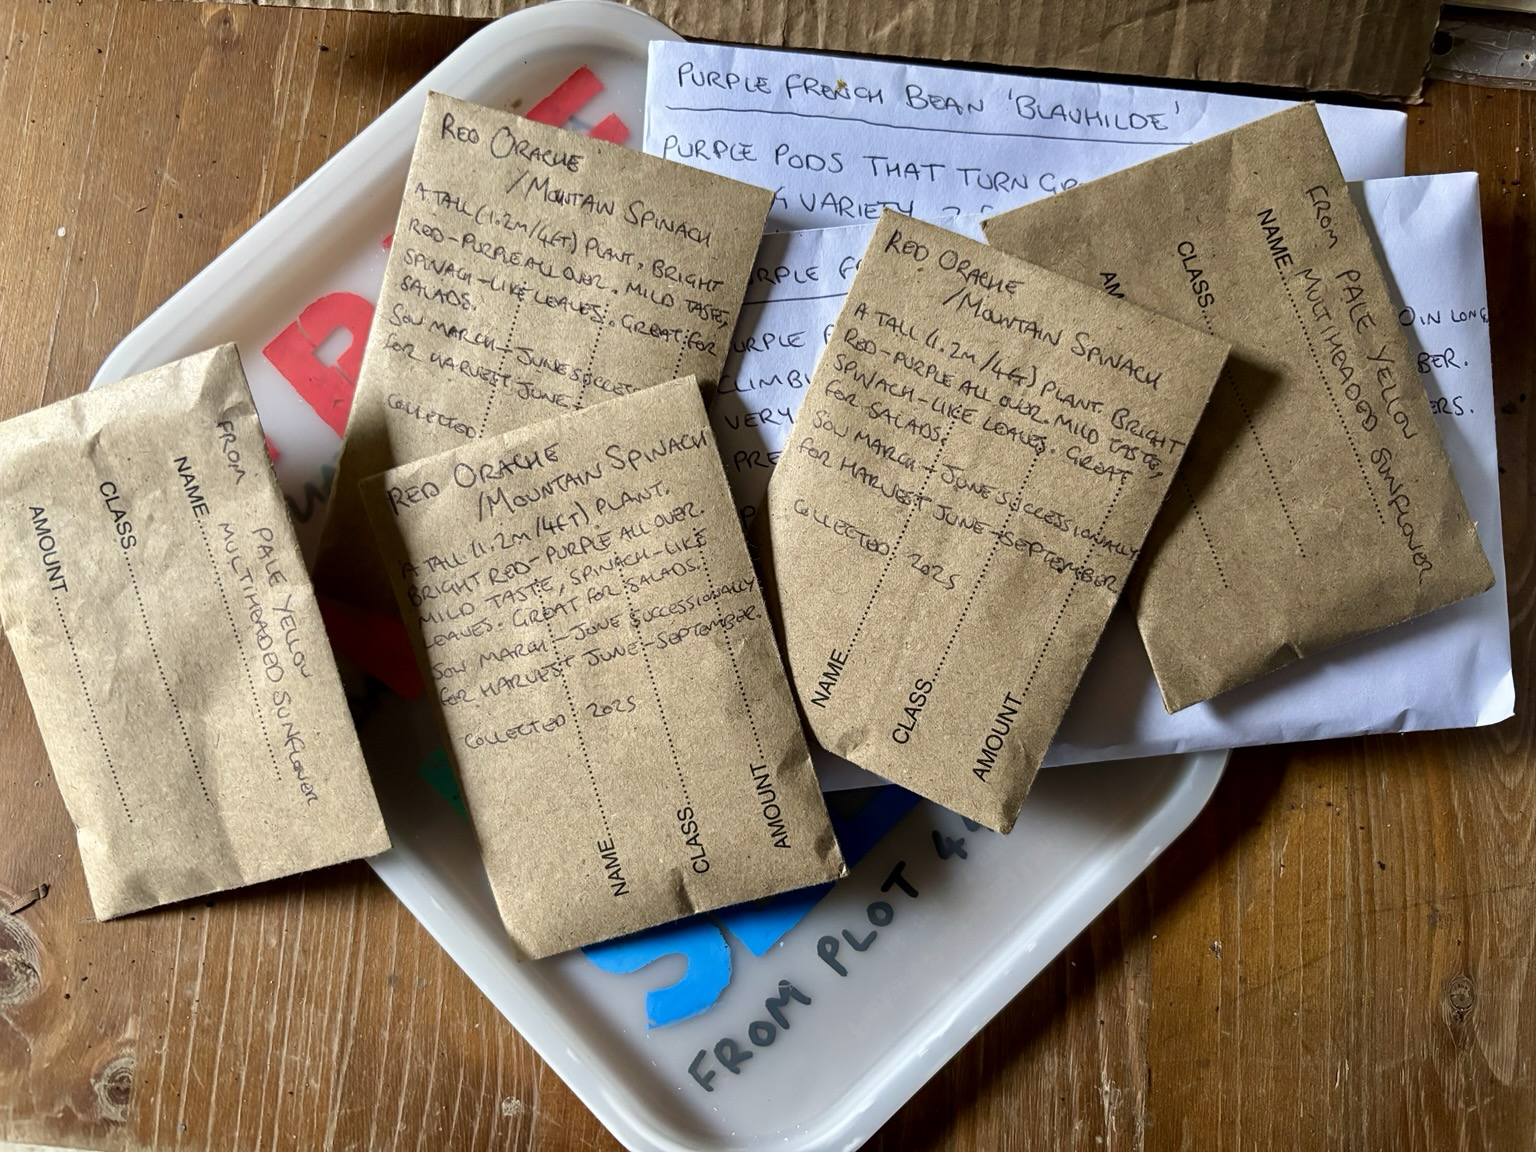 PURPLE FRENCH BEAN 'BLAUHILDE'
PURPLE PODS THAT TURN
VARIETY
RED ORACHE
/MOUNTAIN SPINACH
A TALL (1.2M/4FT) PLANT. BRIGHT
RED-PURPLE ALL OVER. MILD TASTE,
SPINACH-LIKE LEAVES. GREAT FOR
SALADS.
SOW MARCH-JUNE
FOR HARVEST JUNE-
COLLECTED
RED ORACHE
/MOUNTAIN SPINACH
A TALL (1.2M/4FT) PLANT. BRIGHT
RED-PURPLE ALL OVER. MILD TASTE,
SPINACH-LIKE LEAVES. GREAT
FOR SALADS.
SOW MARCH-JUNE SUCCESSIONALLY
FOR HARVEST JUNE-SEPTEMBER
COLLECTED 2025
NAME
CLASS
AMOUNT
FROM PALE YELLOW
MULTIHEADED SUNFLOWER
NAME
CLASS
IN LONG
VERY
FROM PALE YELLOW
MULTIHEADED SUNFLOWER
NAME
CLASS
AMOUNT
RED ORACHE
/MOUNTAIN SPINACH
A TALL (1.2M/4FT) PLANT.
BRIGHT RED-PURPLE ALL OVER.
MILD TASTE, SPINACH-LIKE
LEAVES. GREAT FOR SALADS.
SOW MARCH-JUNE SUCCESSIONALLY
FOR HARVEST JUNE-SEPTEMBER.
COLLECTED 2025
NAME
CLASS
AMOUNT
FROM PLOT